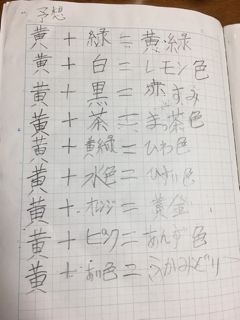 予想
黄+緑=黄緑
黄+白=レモン色
黄+黒=すみ
黄+茶=まっ茶色
黄+黄緑=ひわ色
黄+水色=ひすい色
黄+オレンジ=黄金
黄+ピンク=あんず色
黄+色=ふかみどり